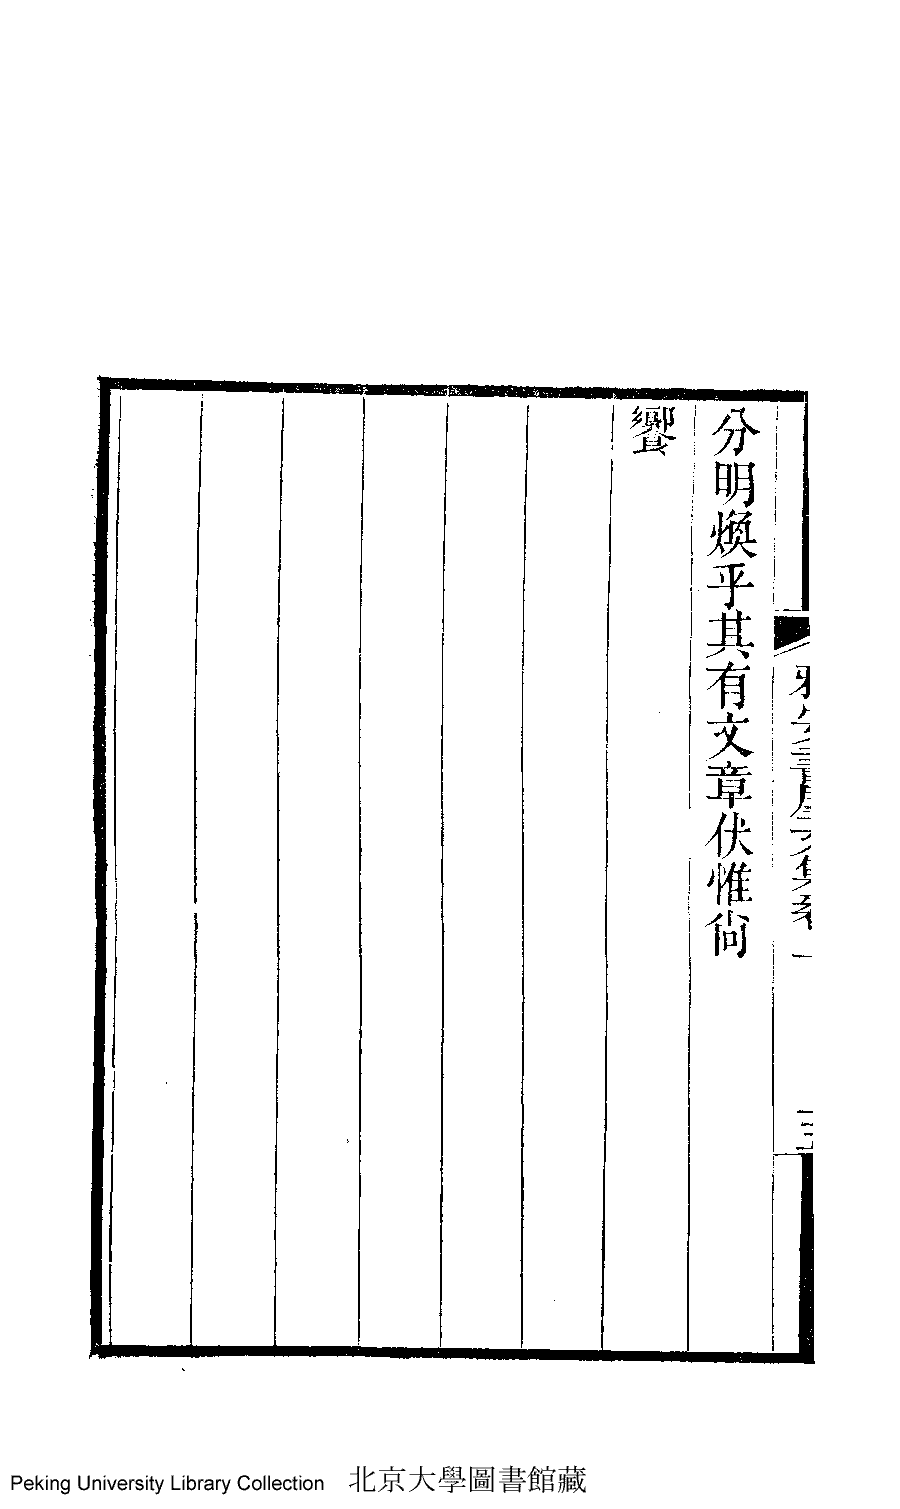 分明煥乎其有文章伏惟尙
饗
雅安書屋文集卷一
Peking University Library Collection 北京大學圖書館藏